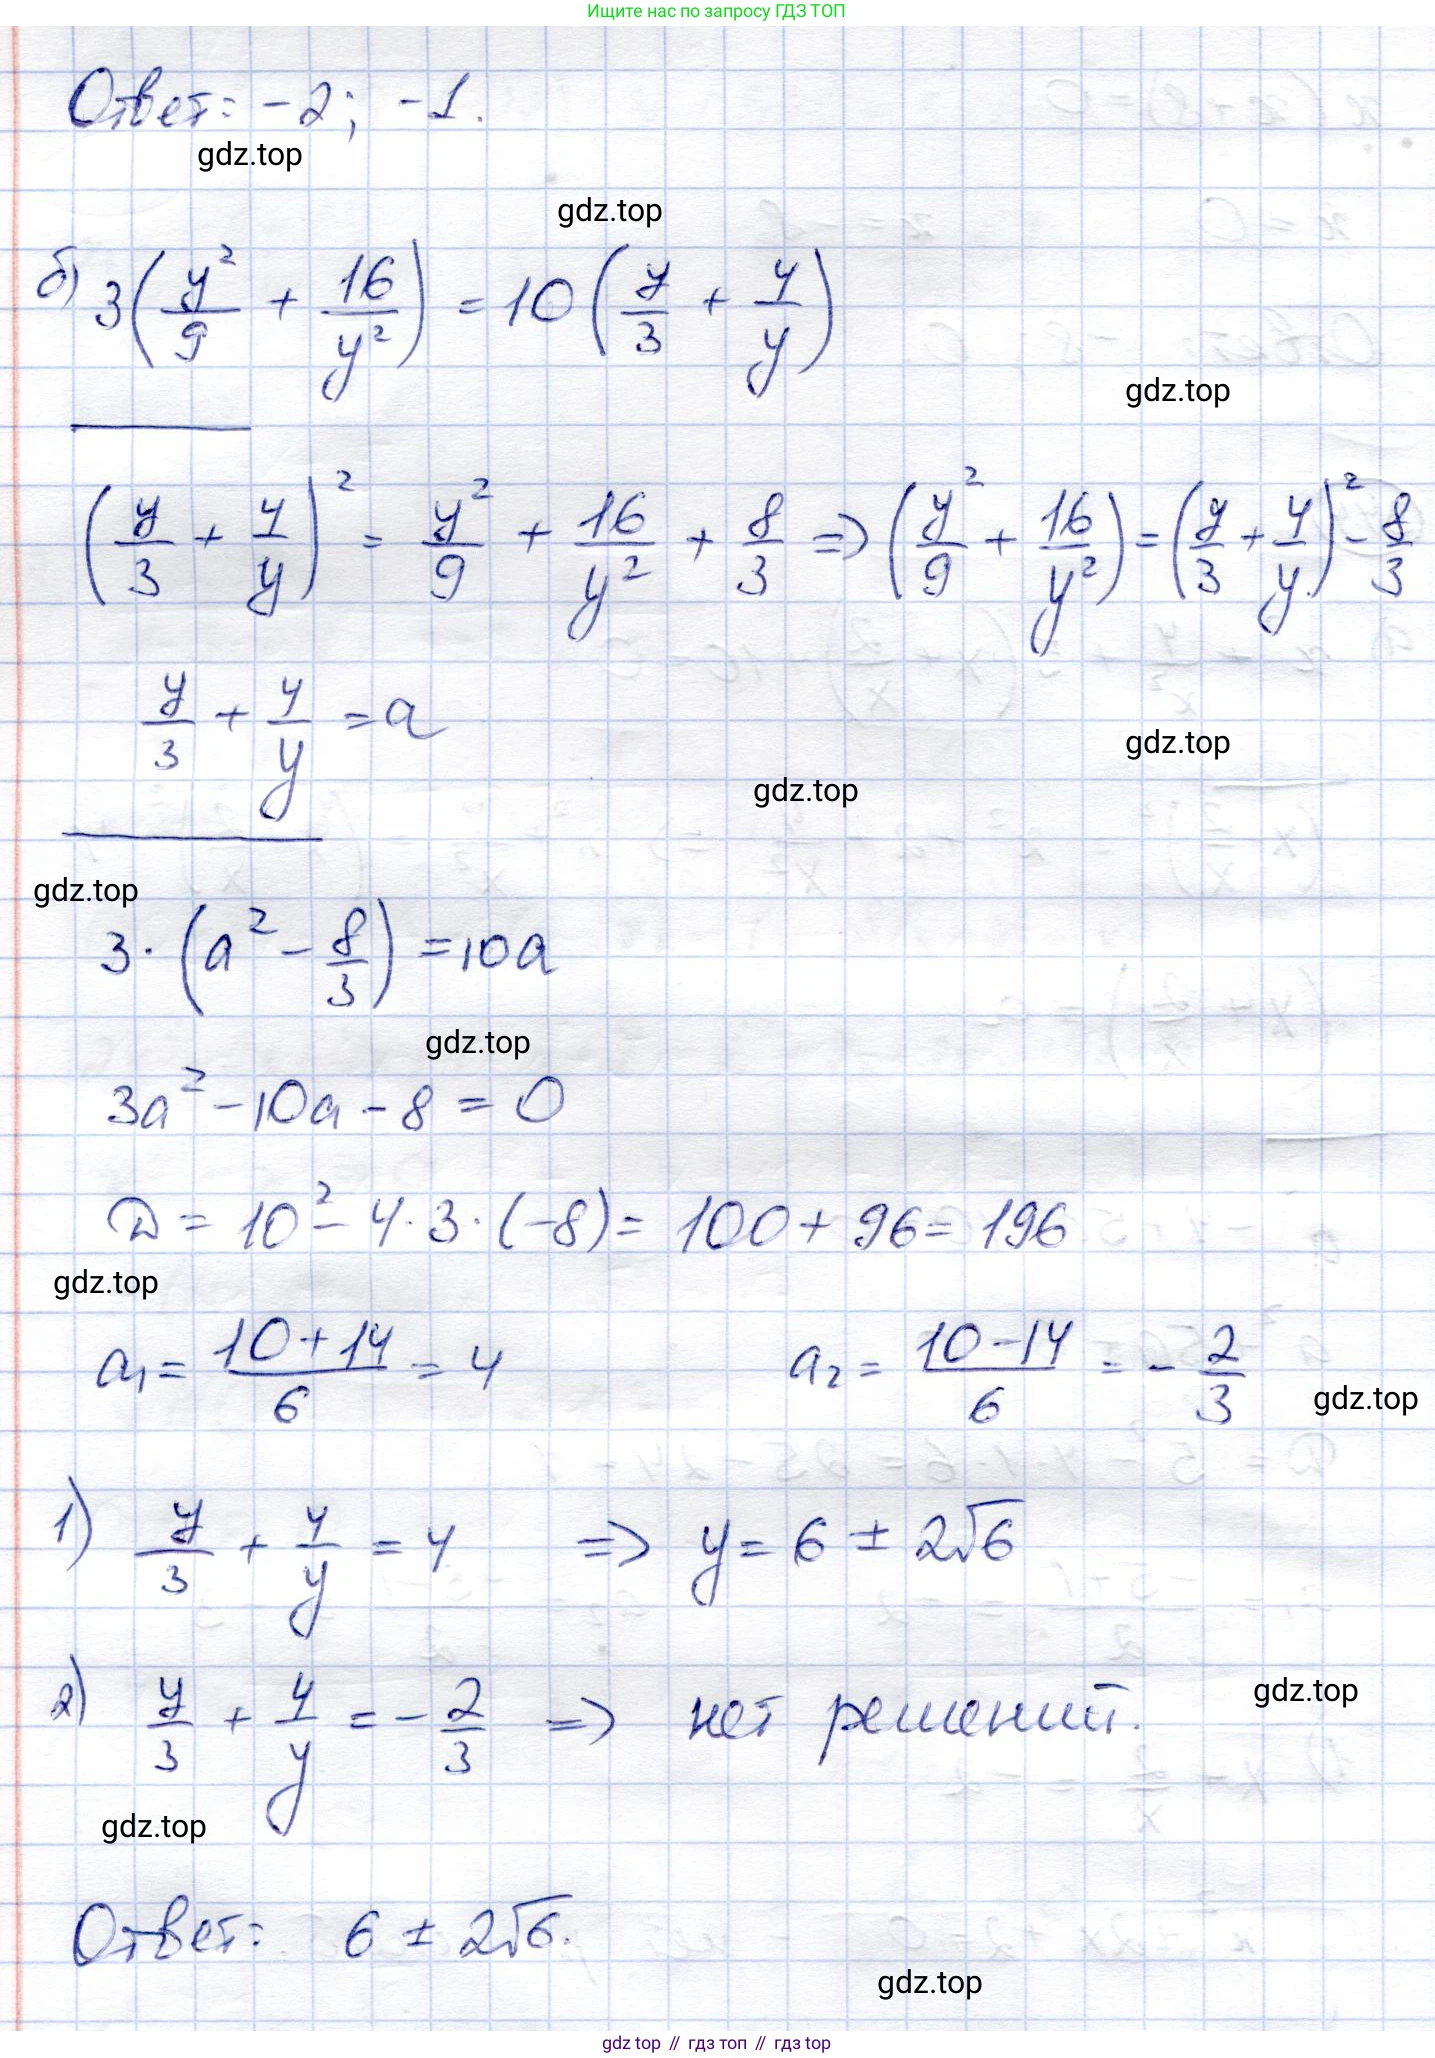 Ищите нас по запросу ГДЗ ТОП
Ответ: -2; -1.
gdz.top
gdz.top
б) 3(y²/9 + 16/y²) = 10(y/3 + 4/y)
gdz.top
(y/3 + 4/y)² = y²/9 + 16/y² + 8/3 => (y²/9 + 16/y²) = (y/3 + 4/y)² - 8/3
y/3 + 4/y = a
gdz.top
gdz.top
gdz.top
3·(a² - 8/3) = 10a
gdz.top
3a² - 10a - 8 = 0
D = 10² - 4·3·(-8) = 100 + 96 = 196
gdz.top
a₁ = (10+14)/6 = 4 a₂ = (10-14)/6 = -2/3
gdz.top
1) y/3 + 4/y = 4 => y = 6 ± 2√6
2) y/3 + 4/y = -2/3 => нет решений.
gdz.top
gdz.top
Ответ: 6 ± 2√6.
gdz.top
gdz top // гдз топ // гдз top